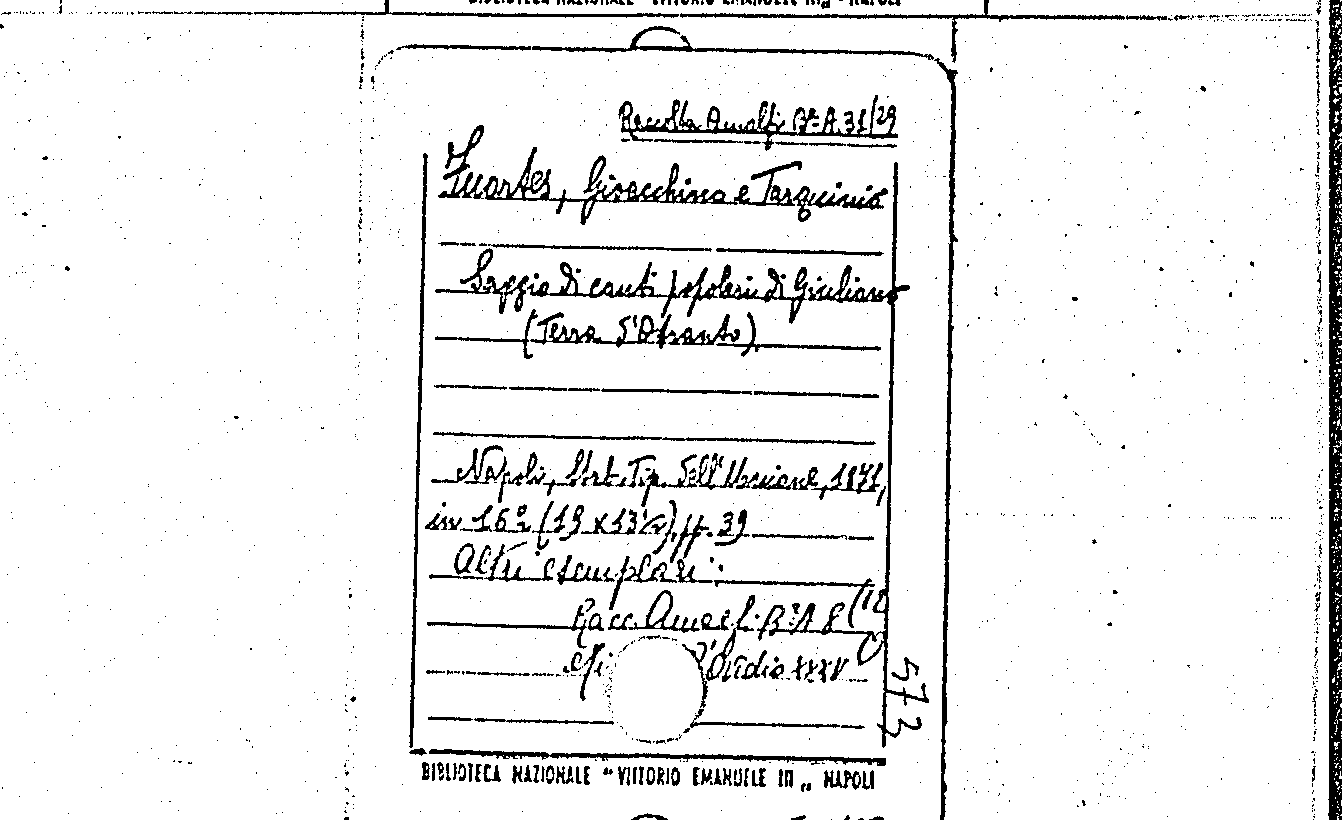 BIBLIOTECA NAZIONALE "VITTORIO EMANUELE III„ - NAPOLI
Raccolta Amalfi Bª A 31/29
Fuortes, Gioacchino e Tarquinio
Saggio di canti popolari di Giuliano
(Terra d'Otranto).
Napoli, Stab. Tip. dell'Unione, 1871,
in 16º (19 x 13), pp. 39
Altri esemplari:
Racc. Amalfi Bª A 8 (12
d'Ovidio XXXV
573
BIBLIOTECA NAZIONALE "VITTORIO EMANUELE III„ NAPOLI